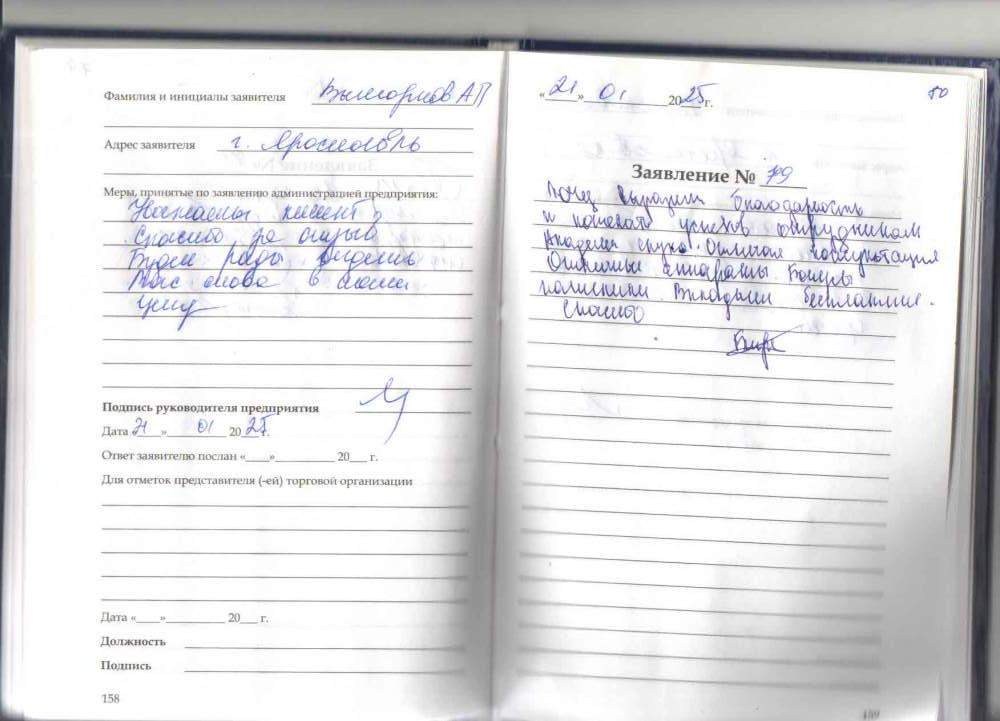 Фамилия и инициалы заявителя
Адрес заявителя г. Ярославль
Меры, принятые по заявлению администрацией предприятия:
Уважаемы клиент
Спасибо за отзыв
Будем рады видеть
Вас снова в нашем
Подпись руководителя предприятия
Дата 21 » 01 20 25 г.
Ответ заявителю послан «____»__________ 20___ г.
Для отметок представителя (-ей) торговой организации
Дата «____»__________ 20___ г.
Должность
Подпись
158
« 21 » 01 20 25 г.
80
Заявление № 79
Хочу выразить благодарность
и пожелать успехов сотрудникам
Академии слуха. Отличная консультация
Отличные аппараты
Вкладыши бесплатные.
Спасибо
159